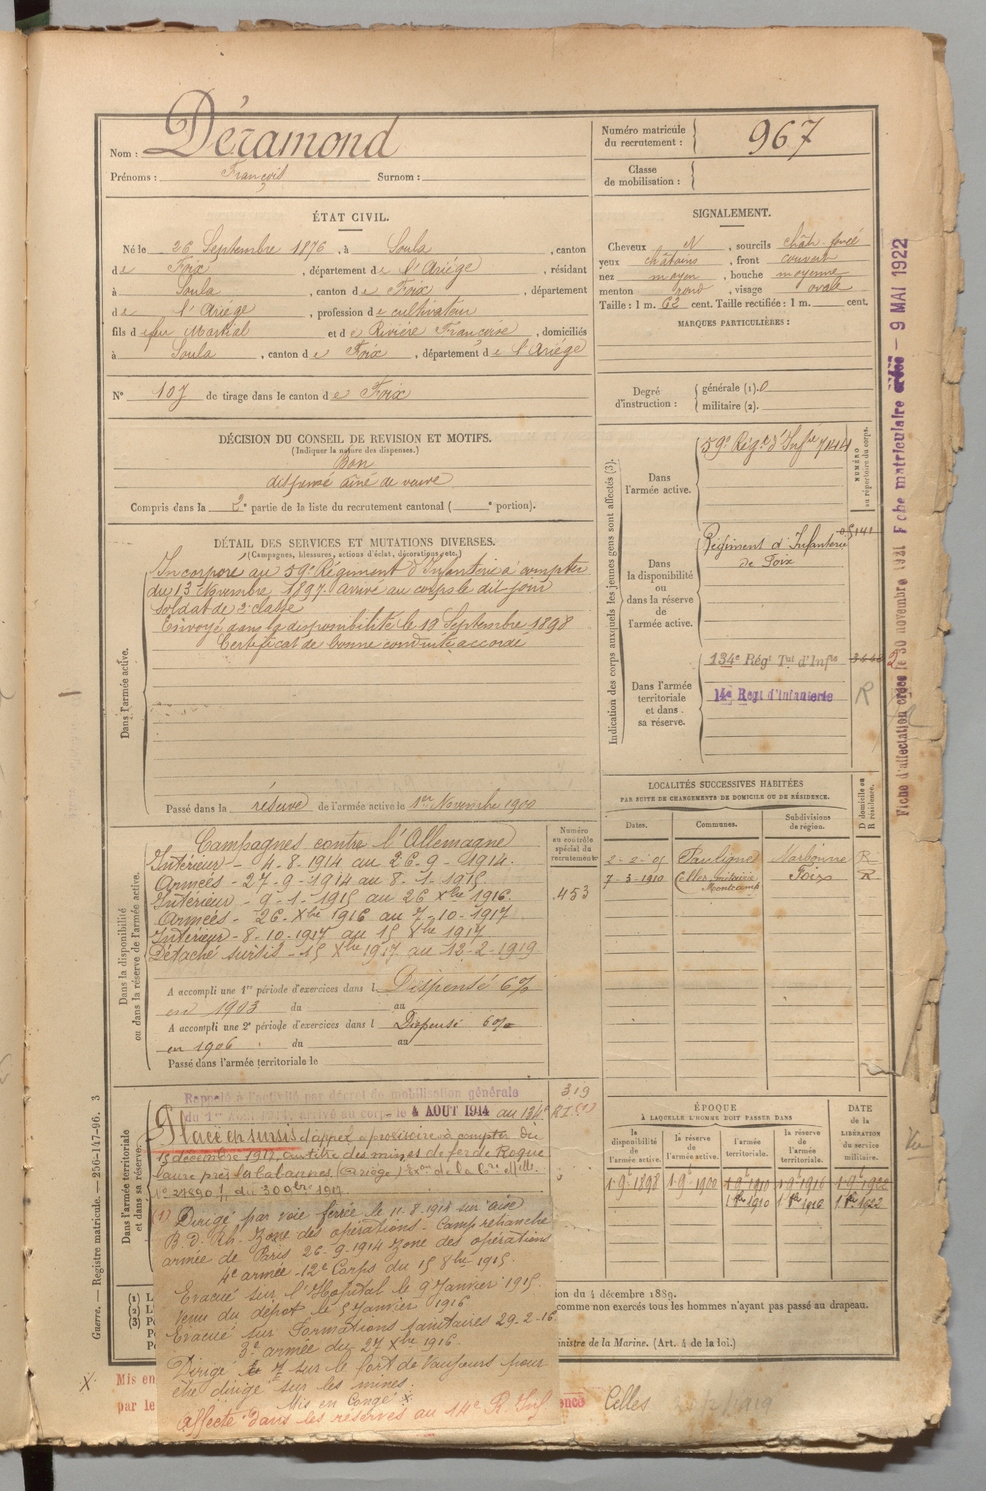 Nom : Déramond
Prénoms : François Surnom :
Numéro matricule du recrutement : 967
Classe de mobilisation :
ÉTAT CIVIL.
Né le 26 Septembre 1876, à Soula, canton
de Foix, département de l'Ariége, résidant
à Soula, canton de Foix, département
de l'Ariége, profession de cultivateur
fils de feu Martial et de Rivière Françoise, domiciliés
à Soula, canton de Foix, département de l'Ariége
N° 107 de tirage dans le canton de Foix
SIGNALEMENT.
Cheveux N, sourcils chât. foncé
yeux châtains, front couvert
nez moyen, bouche moyenne
menton rond, visage ovale
Taille : 1 m. 62 cent. Taille rectifiée : 1 m. cent.
MARQUES PARTICULIÈRES :
Degré d'instruction : générale (1). 0
militaire (2).
DÉCISION DU CONSEIL DE REVISION ET MOTIFS.
(Indiquer la nature des dispenses.)
Bon
dispensé aîné de veuve
Compris dans la 2e partie de la liste du recrutement cantonal ( e portion).
DÉTAIL DES SERVICES ET MUTATIONS DIVERSES.
(Campagnes, blessures, actions d'éclat, décorations, etc.)
Dans l'armée active.
Incorporé au 59e Régiment d'Infanterie à compter
du 13 Novembre 1897. Arrivé au corps le dit jour
Soldat de 2e classe
Envoyé dans la disponibilité le 19 Septembre 1898
Certificat de bonne conduite accordé
Passé dans la réserve de l'armée active le 1er Novembre 1900
Indication des corps auxquels les jeunes gens sont affectés (3).
NUMÉRO au répertoire du corps.
Dans l'armée active.
59e Régt d'Infie 7144
Dans la disponibilité ou dans la réserve de l'armée active.
Régiment d'Infanterie
de Foix
Dans l'armée territoriale et dans sa réserve.
134e Régt Tal d'Infie
14e Régt d'Infanterie
R
LOCALITÉS SUCCESSIVES HABITÉES
PAR SUITE DE CHANGEMENTS DE DOMICILE OU DE RÉSIDENCE.
Dates. Communes. Subdivisions de région. D domicile ou R résidence.
2-2-05 Pauligne Narbonne R
7-3-1910 Celles Foix R
Montcamp
Dans la disponibilité ou dans la réserve de l'armée active.
Numéro au contrôle spécial du recrutement
453
Campagnes contre l'Allemagne
Intérieur - 4-8-1914 au 26-9-1914.
Armées - 27-9-1914 au 8-1-1915
Intérieur - 9-1-1915 au 26 Xbre 1916.
Armées - 26 Xbre 1916 au 7-10-1917
Intérieur - 8-10-1917 au 15 Xbre 1917
Détaché sursis - 15 Xbre 1917 au 13-2-1919
A accompli une 1re période d'exercices dans l Dispensé 6%
en 1903 du au
A accompli une 2e période d'exercices dans l Dispensé 6%
en 1906 du au
Passé dans l'armée territoriale le
Dans l'armée territoriale et dans sa réserve.
Rappelé à l'activité par décret de mobilisation générale
du 1er Août 1914, arrivé au corps le 4 AOUT 1914 au 134e
R.I. (1)
319
Placé en sursis d'appel provisoire à compter du
15 décembre 1917, au titre des mines de fer de Roque
laure près la Cabannes (Ariège)
du 30 9bre 1917
(1) Dirigé par voie ferrée le 11.8.1914 sur
Zône des opérations - Camp retranché
armée de Paris 26-9-1914 Zone des opérations
4e armée - 12e Corps du 15 8bre 1915.
Evacué sur l'Hôpital le 9 Janvier 1915
Venu du dépôt le 5 Janvier 1916
Evacué sur Formations sanitaires 29-2-16
3e armée du 27 Xbre 1916.
Dirigé sur le fort de Vaujours pour
être dirigé sur les mines.
Mis en Congé x
Affecté dans les réserves au 14e R. Inf.
ÉPOQUE
À LAQUELLE L'HOMME DOIT PASSER DANS
la disponibilité de l'armée active. la réserve de l'armée active. l'armée territoriale. la réserve de l'armée territoriale.
DATE de la LIBÉRATION du service militaire.
1 9bre 1898 1 9bre 1900 1 9bre 1910 1 9bre 1916 1 9bre 1922
1 8bre 1910 1 8bre 1916 1 8bre 1922
ion du 4 décembre 1889.
comme non exercés tous les hommes n'ayant pas passé au drapeau.
inistre de la Marine. (Art. 4 de la loi.)
x Mis en
par le
Celles
Guerre. — Registre matricule. — 256-147-96. 3
Fiche d'affectation créée le 30 novembre 1921 Fiche matriculaire créée — 9 MAI 1922